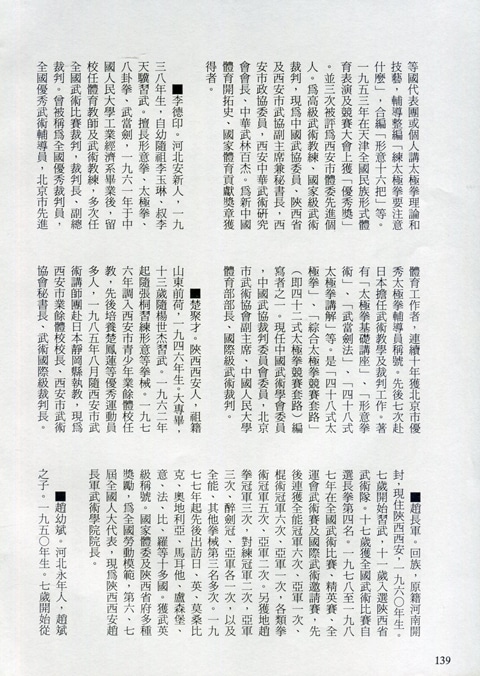 等國代表團或個人講太極拳理論和
技藝，輔導整編「練太極拳要注意
什麼」，合編「形意十六把」等。
一九五三年在天津全國民族形式體
育表演及競賽大會上獲「優秀獎」
。並三次被評爲西安市體委先進個
人。爲高級武術教練、國家級武術
裁判，現爲中國武協委員、陝西省
及西安市武協副主席兼秘書長，西
安市政協委員，西安中華武術研究
會會長、中華武林百杰。爲新中國
體育開拓史、國家體育貢獻獎章獲
得者。
■李德印。河北安新人，一九
三八年生，自幼隨祖李玉琳、叔李
天驥習武。擅長形意拳、太極拳、
八卦拳、武當劍，一九六一年于中
國人民大學工業經濟系畢業後，留
校任體育教師及武術教練，多次任
全國武術比賽裁判，裁判長、副總
裁判。曾被稱爲全國優秀裁判員，
全國優秀武術輔導員，北京市先進
體育工作者，連續十年獲北京市優
秀太極拳輔導員稱號。先後七次赴
日本擔任武術教學及裁判工作。著
有「太極拳基礎講座」、「形意拳
術」、「武當劍法」、「四十八式
太極拳講解」等。是「四十八式太
極拳」、「綜合太極拳競賽套路」
（即四十二式太極拳競賽套路）編
寫者之一。現任中國武術學會委員
，中國武協裁判委員會委員，北京
市武術協會副主席、中國人民大學
體育部部長、國際級武術裁判。
■楚聚才。陝西西安人，祖籍
山東前荷，一九四六年生。大專畢，
十三歲隨楊世杰習武。一九六二年
起隨張桐習練形意等拳械。一九七
六年調入西安市青少年業餘體校任
教，先後培養楚鳳蓮等優秀運動員
多人，一九八五年八月隨西安市武
術講師團赴日本靜岡縣執教，現爲
西安市業餘體校校長、西安市武術
協會秘書長、武術國際級裁判長。
■趙長軍。回族，原籍河南開
封，現住陝西西安，一九六〇年生。
七歲開始習武，十一歲入選陝西省
武術隊。十七歲獲全國武術比賽自
選長拳第四名。一九七八至一九八
七年在全國武術比賽、精英賽、全
運會武術賽及國際武術邀請賽，先
後連獲全能冠軍六次、亞軍一次、
棍術冠軍六次、亞軍一次，各類拳
術冠軍五次、亞軍二次。另獲地趟
拳冠軍三次，對練冠軍二次，亞軍
三次，醉劍冠、亞軍各一次，以及
全能、其他拳械第三名多次。一九
七七年起先後出訪日、英、莫桑比
克、奧地利亞、馬耳他、盧森堡、
意、法、比、羅等十多國。獲武英
級稱號。國家體委及陝西省府多種
獎勵，爲全國勞動模範，第六、七
屆全國人大代表，現爲陝西西安趙
長軍武術學院院長。
■趙幼斌。河北永年人，趙斌
之子。一九五〇年生。七歲開始從
139